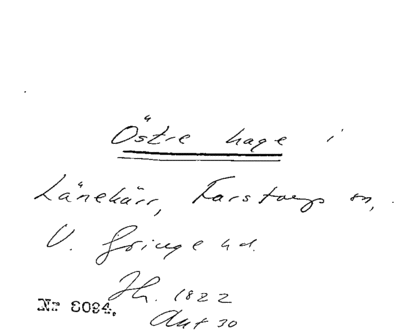 Östre hage i
Länehärr, Farstorps sn,
V. Göinge hd.
Jh. 1822
Ant 30
Nr 8094.